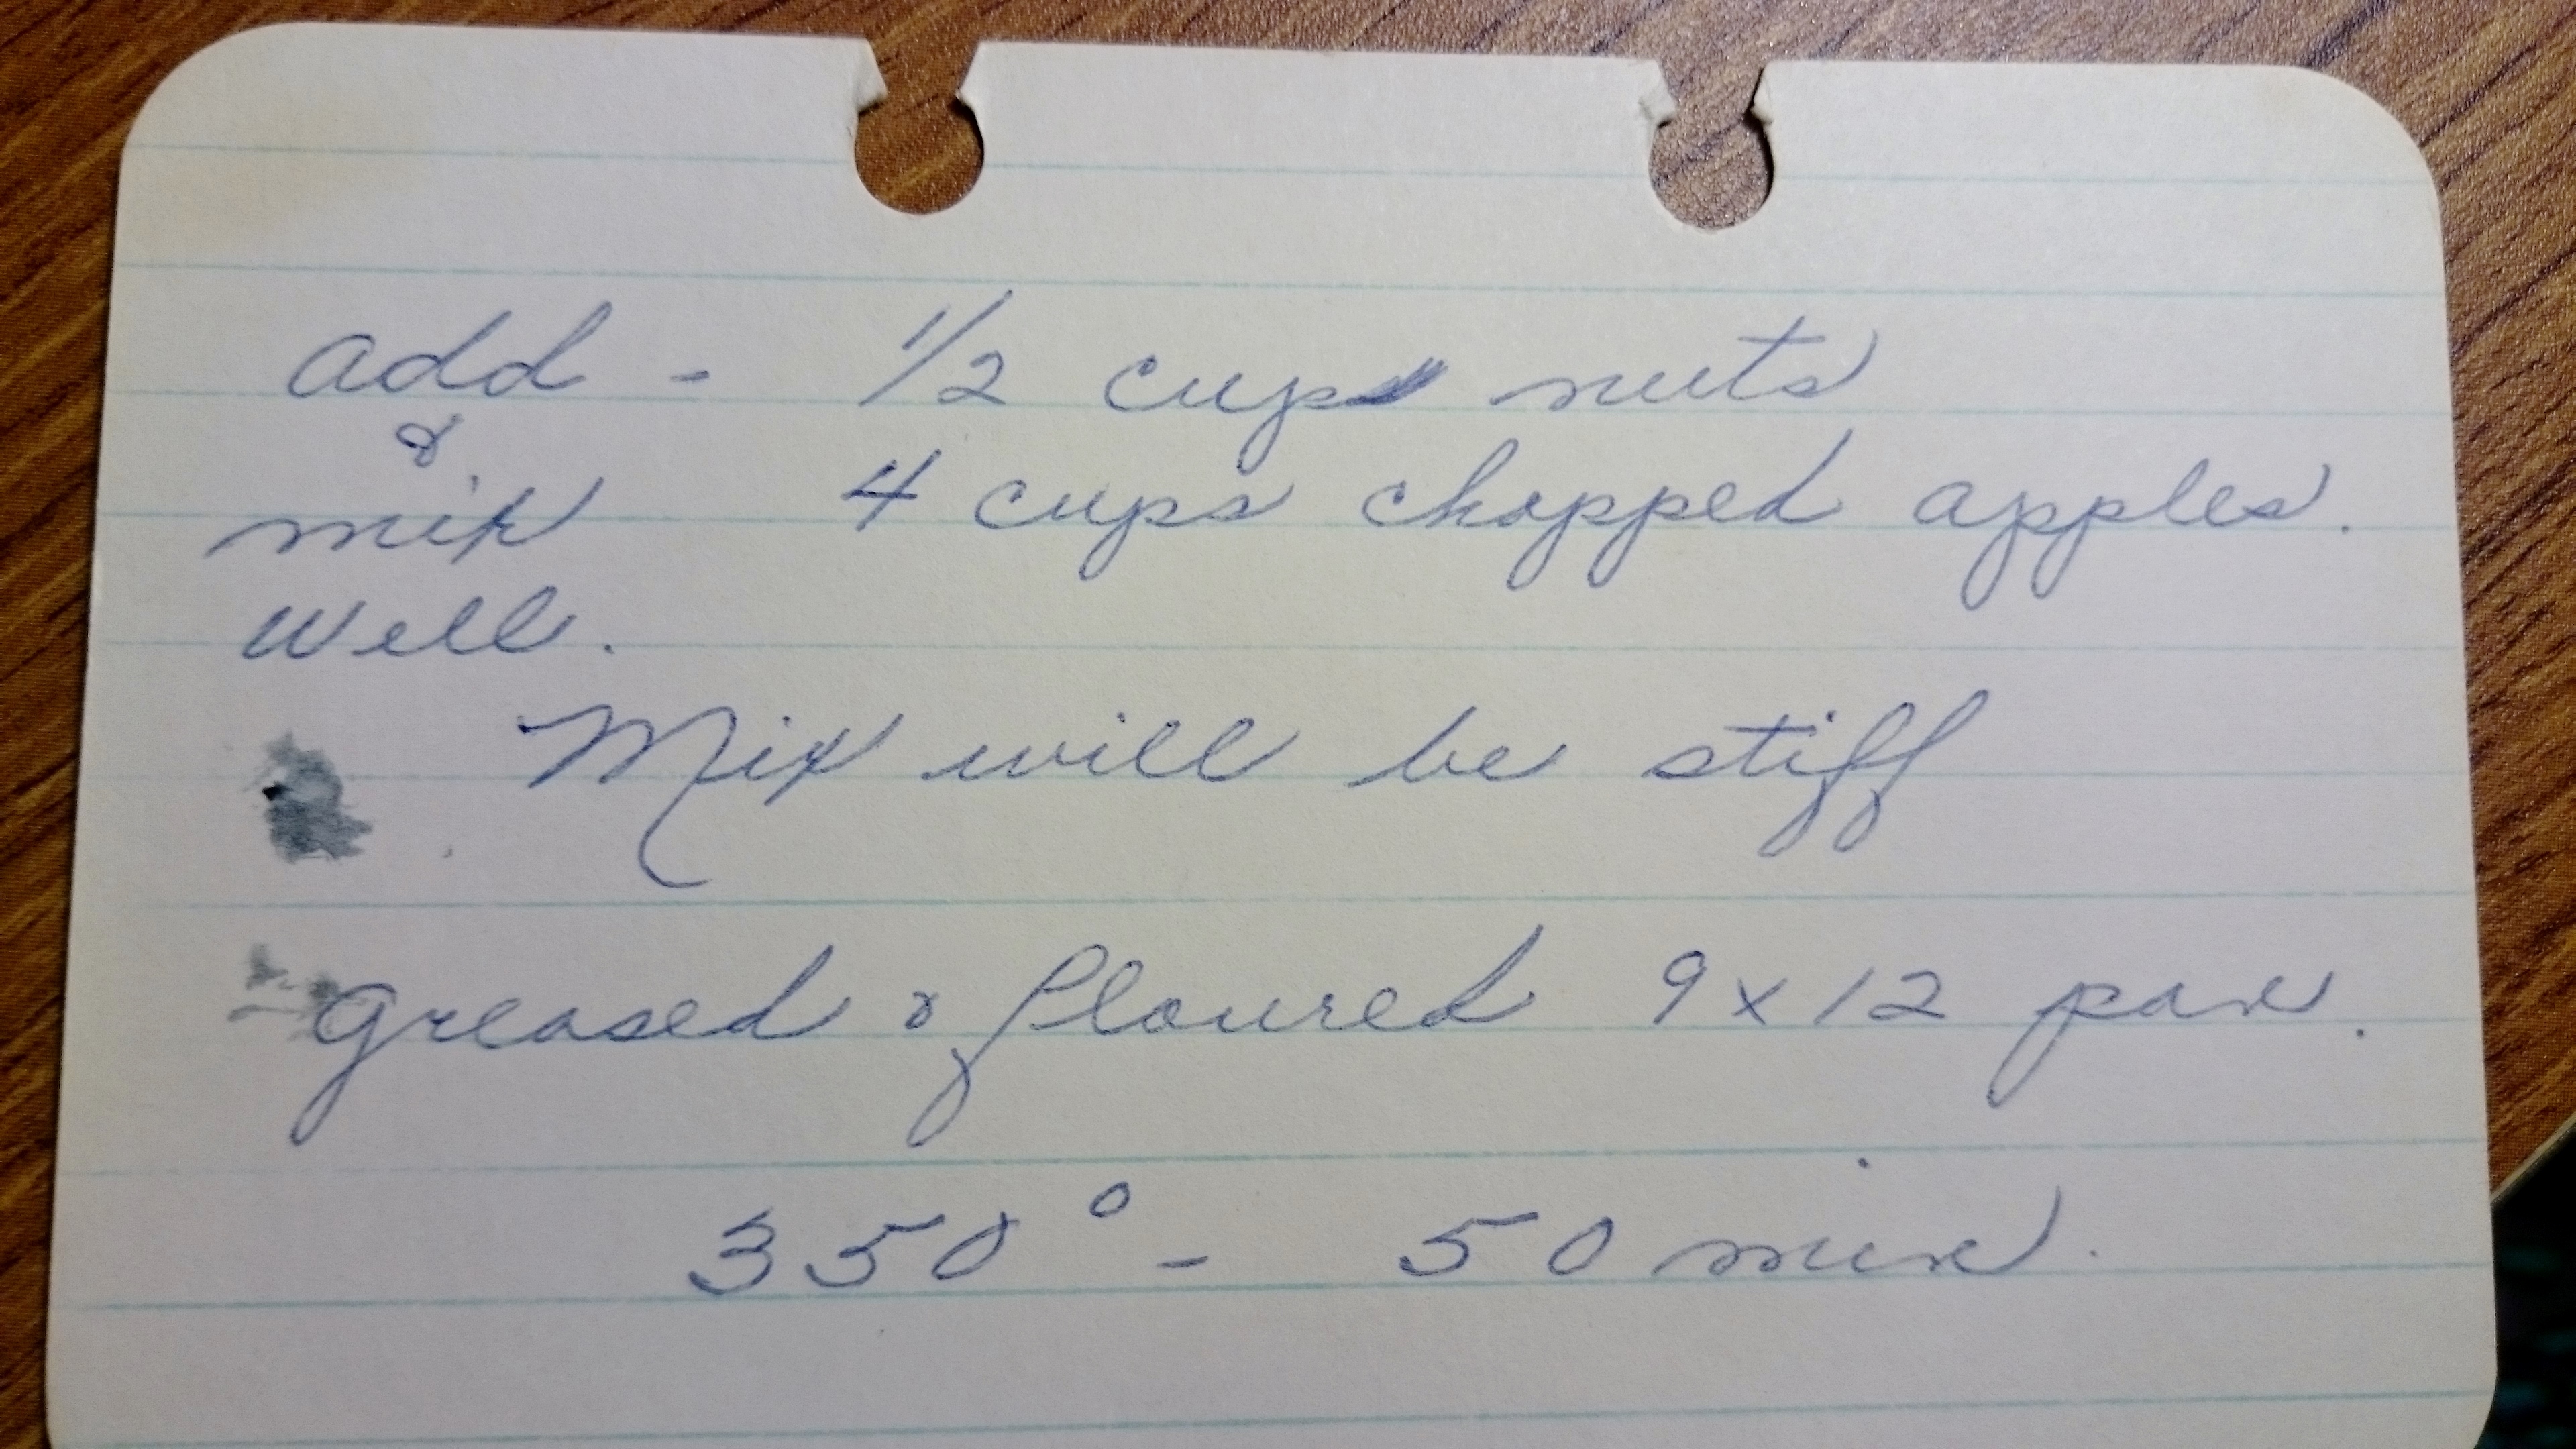 add - 1/2 cup nuts
&
mix 4 cups chopped apples.
well.
Mix will be stiff
Greased & floured 9 x 12 pan.
350° - 50 min.